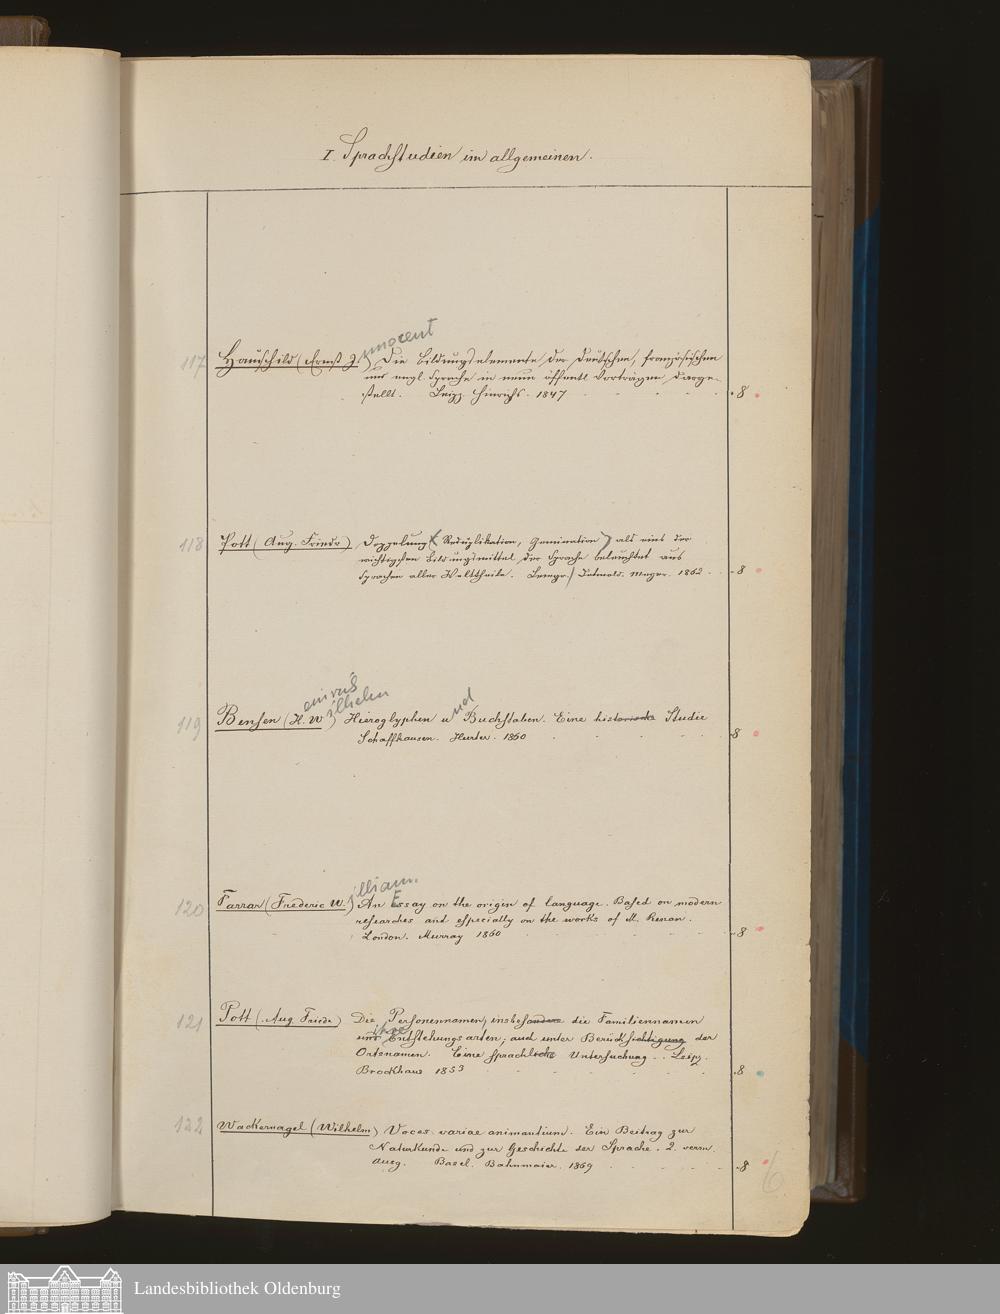 I. Sprachstudien im allgemeinen.
117 Hauschild (Ernst J.) nnocent Die Bildungselemente der deutschen, französischen
und engl. Sprache in neun öffentl. Vorträgen darge-
stellt. Leipz. Hinrichs. 1847 8
118 Pott (Aug. Friedr) Doppelung (Reduplikation, Gemination) als eins der
wichtigsten Bildungsmittel der Sprache beleuchtet aus
Sprachen aller Welttheile. Lemgo / Detmold. Meyer. 1862 8
119 Bensen (H. W) einrich ilhelm Hieroglyphen und Buchstaben. Eine historische Studie
Schaffhausen. Hurter. 1860 8
120 Farrar (Frederic W.) illiam. An Essay on the origin of language. Based on modern
researches and especially on the works of M. Renan.
London. Murray 1860 8
121 Pott (Aug Friedr) Die Personennamen, insbesondere die Familiennamen
und ihre Entstehungsarten; auch unter Berücksichtigung der
Ortsnamen. Eine sprachliche Untersuchung. Leipz.
Brockhaus 1853 8
122 Wackernagel (Wilhelm) Voces variae animantium. Ein Beitrag zur
Naturkunde und zur Geschichte der Sprache. 2. verm.
Ausg. Basel. Bahnmaier. 1869 8
6
Landesbibliothek Oldenburg